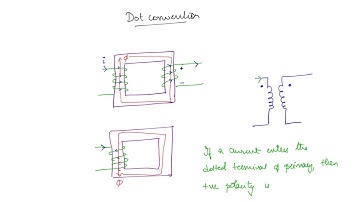 Dot convention
i
Φ
+
-
Φ
If a current enters the
dotted terminal of primary, then
+ve polarity is